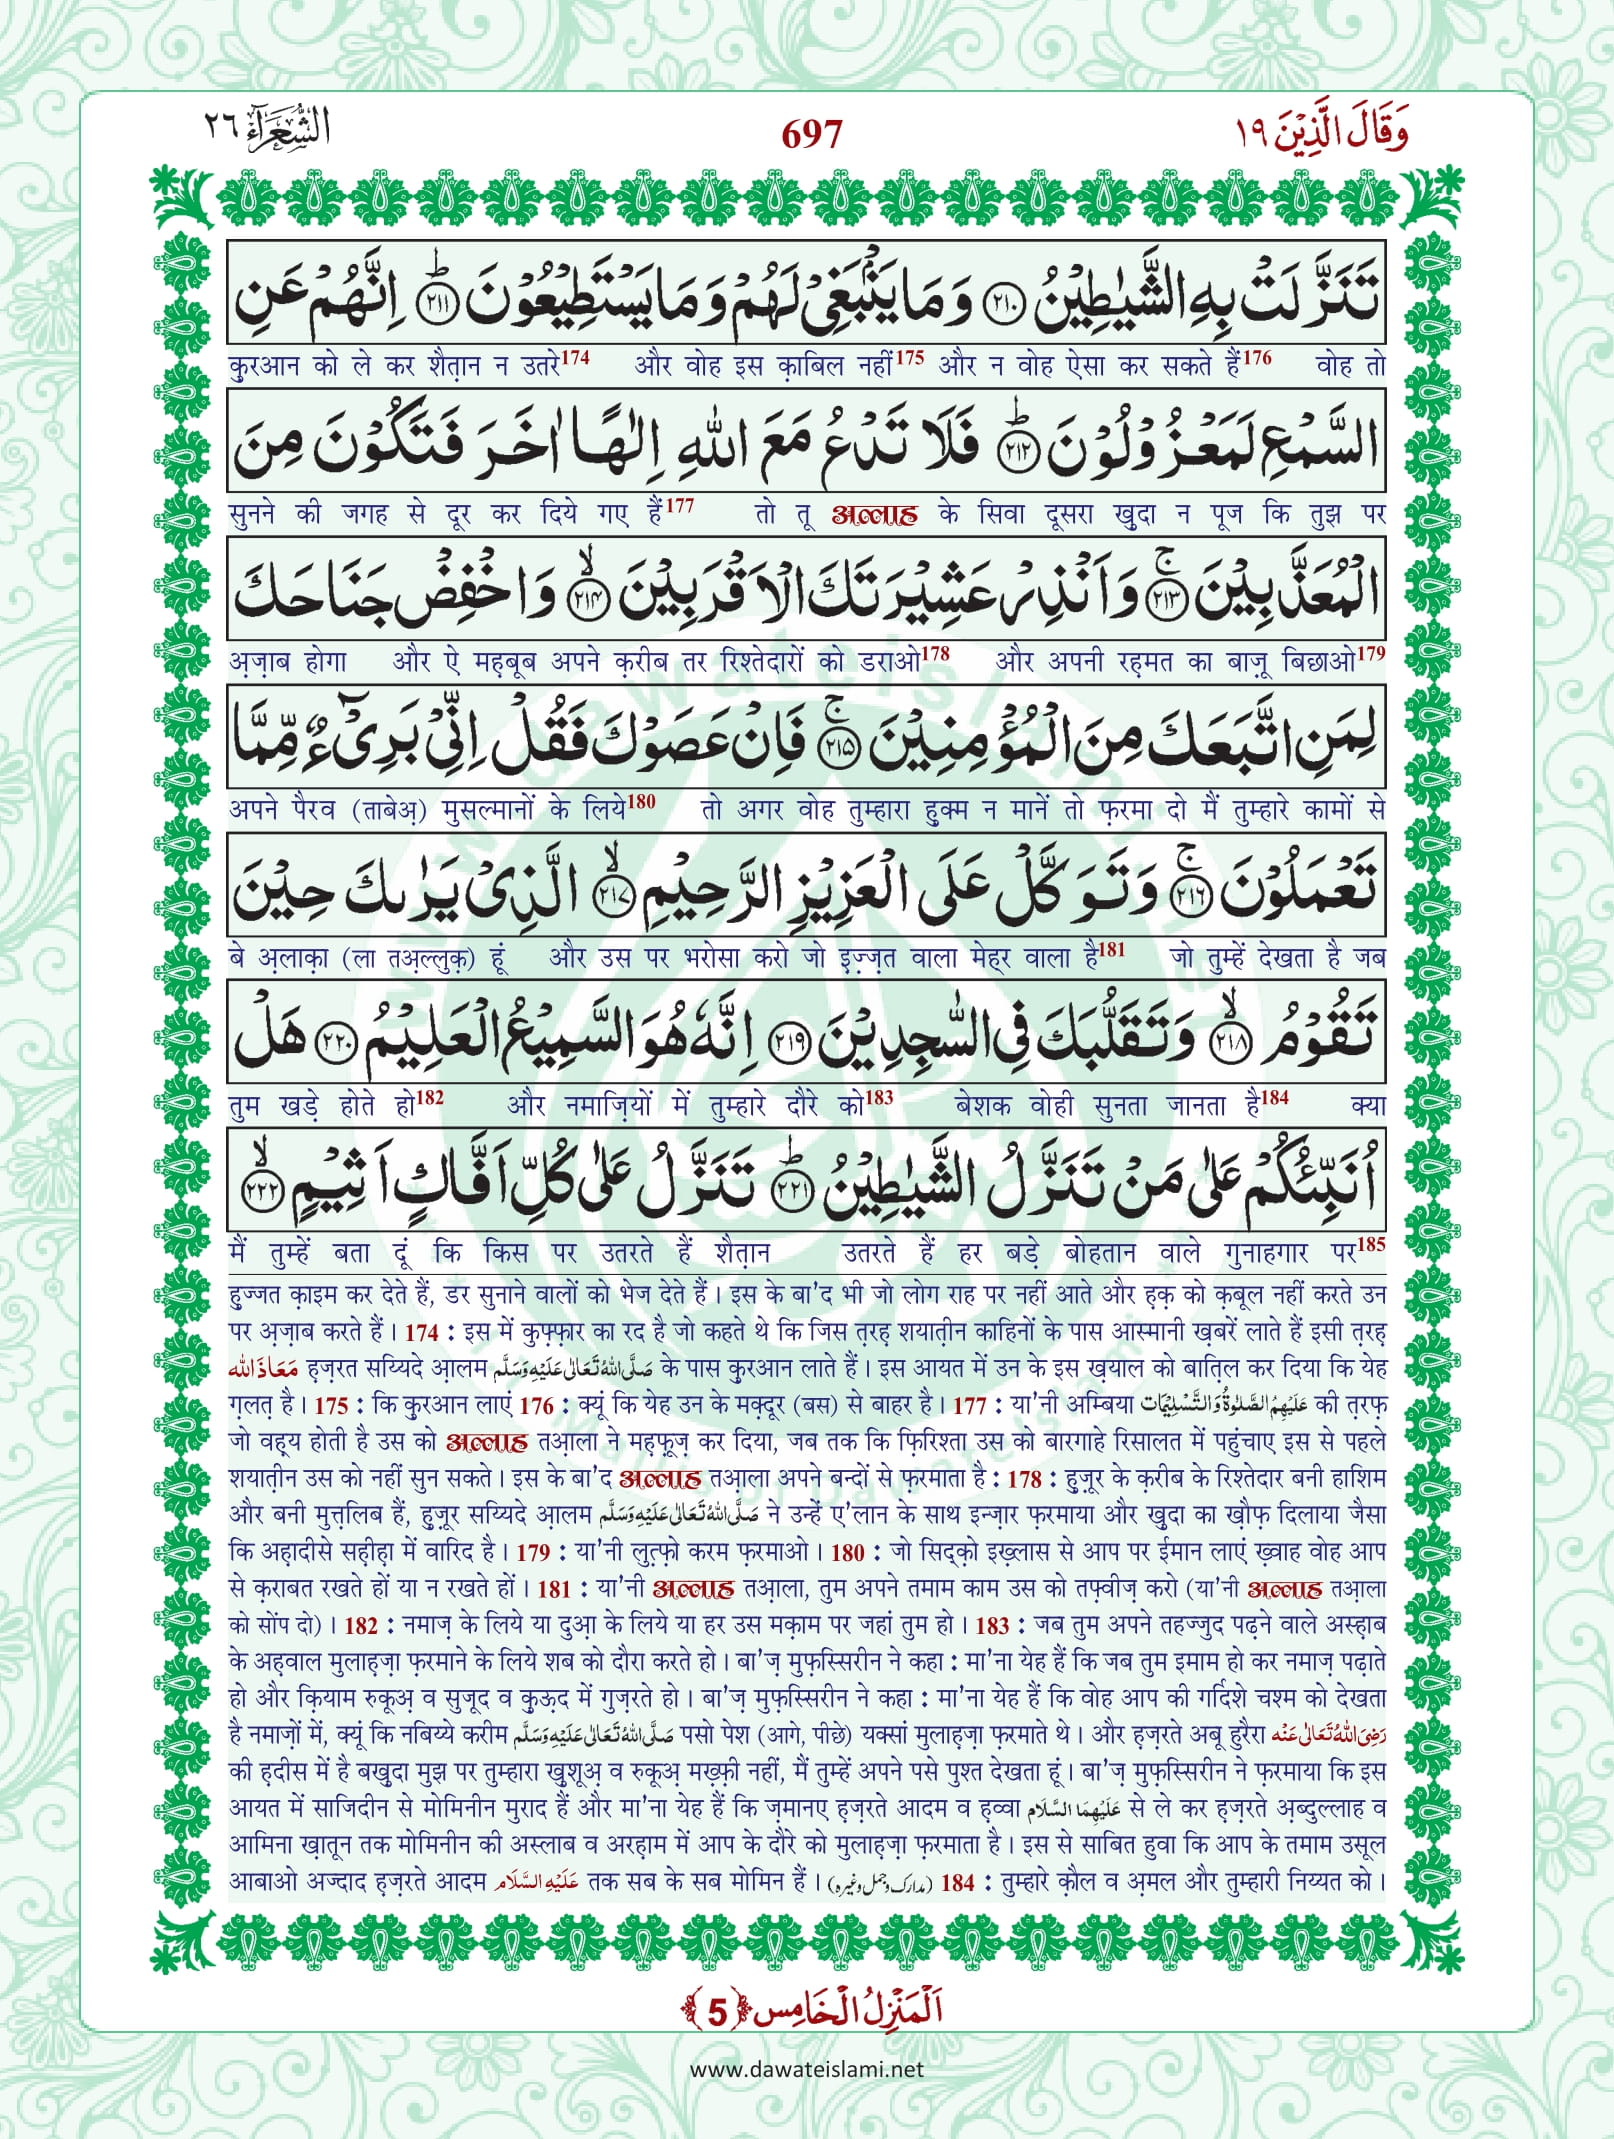 وَقَالَ الَّذِیْنَ ١٩ 697 الشُّعَرَآء ٢٦
تَنَزَّلَتْ بِهِ الشَّیٰطِیْنُ ﴿۲۱۰﴾ وَمَا یَنْۢبَغِیْ لَهُمْ وَمَا یَسْتَطِیْعُوْنَ ؕ﴿۲۱۱﴾ اِنَّهُمْ عَنِ
कुरआन को ले कर शैत़ान न उतरे174 और वोह इस क़ाबिल नहीं175 और न वोह ऐसा कर सकते हैं176 वोह तो
السَّمْعِ لَمَعْزُوْلُوْنَ ؕ﴿۲۱۲﴾ فَلَا تَدْعُ مَعَ اللّٰهِ اِلٰهًا اٰخَرَ فَتَكُوْنَ مِنَ
सुनने की जगह से दूर कर दिये गए हैं177 तो तू अल्लाह के सिवा दूसरा खुदा न पूज कि तुझ पर
الْمُعَذَّبِیْنَ ۚ﴿۲۱۳﴾ وَاَنْذِرْ عَشِیْرَتَكَ الْاَقْرَبِیْنَ ۙ﴿۲۱۴﴾ وَاخْفِضْ جَنَاحَكَ
अज़ाब होगा और ऐ महबूब अपने क़रीब तर रिश्तेदारों को डराओ178 और अपनी रह़मत का बाज़ू बिछाओ179
لِمَنِ اتَّبَعَكَ مِنَ الْمُؤْمِنِیْنَ ۚ﴿۲۱۵﴾ فَاِنْ عَصَوْكَ فَقُلْ اِنِّیْ بَرِیْٓءٌ مِّمَّا
अपने पैरव (ताबेअ़) मुसल्मानों के लिये180 तो अगर वोह तुम्हारा हुक्म न मानें तो फ़रमा दो मैं तुम्हारे कामों से
تَعْمَلُوْنَ ۚ﴿۲۱۶﴾ وَتَوَكَّلْ عَلَى الْعَزِیْزِ الرَّحِیْمِ ۙ﴿۲۱۷﴾ الَّذِیْ یَرٰىكَ حِیْنَ
बे अ़लाक़ा (ला तअ़ल्लुक़) हूं और उस पर भरोसा करो जो इ़ज़्ज़त वाला मेह्र वाला है181 जो तुम्हें देखता है जब
تَقُوْمُ ۙ﴿۲۱۸﴾ وَتَقَلُّبَكَ فِی السّٰجِدِیْنَ ﴿۲۱۹﴾ اِنَّهٗ هُوَ السَّمِیْعُ الْعَلِیْمُ ﴿۲۲۰﴾ هَلْ
तुम खड़े होते हो182 और नमाज़ियों में तुम्हारे दौरे को183 बेशक वोही सुनता जानता है184 क्या
اُنَبِّئُكُمْ عَلٰى مَنْ تَنَزَّلُ الشَّیٰطِیْنُ ؕ﴿۲۲۱﴾ تَنَزَّلُ عَلٰى كُلِّ اَفَّاكٍ اَثِیْمٍ ۙ﴿۲۲۲﴾
मैं तुम्हें बता दूं कि किस पर उतरते हैं शैत़ान उतरते हैं हर बड़े बोहतान वाले गुनाहगार पर185
हुज्जत क़ाइम कर देते हैं, डर सुनाने वालों को भेज देते हैं। इस के बा'द भी जो लोग राह पर नहीं आते और ह़क़ को क़बूल नहीं करते उन
पर अ़ज़ाब करते हैं। 174 : इस में कुफ़्फ़ार का रद है जो कहते थे कि जिस त़रह़ शयात़ीन काहिनों के पास आस्मानी ख़बरें लाते हैं इसी त़रह़
مَعَاذَ اللّٰه ह़ज़रत सय्यिदे आ़लम صَلَّى اللهُ تَعَالٰى عَلَيْهِ وَسَلَّم के पास कुरआन लाते हैं। इस आयत में उन के इस ख़याल को बात़िल कर दिया कि येह
ग़लत़ है। 175 : कि कुरआन लाएं 176 : क्यूं कि येह उन के मक़्दूर (बस) से बाहर है। 177 : या'नी अम्बिया عَلَيْهِمُ الصَّلٰوةُ وَالتَّسْلِيْمَات की त़रफ़
जो वह़्य होती है उस को अल्लाह तआ़ला ने मह़फ़ूज़ कर दिया, जब तक कि फ़िरिश्ता उस को बारगाहे रिसालत में पहुंचाए इस से पहले
शयात़ीन उस को नहीं सुन सकते। इस के बा'द अल्लाह तआ़ला अपने बन्दों से फ़रमाता है : 178 : हुज़ूर के क़रीब के रिश्तेदार बनी हाशिम
और बनी मुत्त़लिब हैं, हुज़ूर सय्यिदे आ़लम صَلَّى اللهُ تَعَالٰى عَلَيْهِ وَسَلَّم ने उन्हें ए'लान के साथ इन्ज़ार फ़रमाया और खुदा का ख़ौफ़ दिलाया जैसा
कि अह़ादीसे सह़ीह़ा में वारिद है। 179 : या'नी लुत़्फ़ो करम फ़रमाओ। 180 : जो सिद्क़ो इख़्लास से आप पर ईमान लाएं ख़्वाह वोह आप
से क़राबत रखते हों या न रखते हों। 181 : या'नी अल्लाह तआ़ला, तुम अपने तमाम काम उस को तफ़्वीज़ करो (या'नी अल्लाह तआ़ला
को सोंप दो)। 182 : नमाज़ के लिये या दुआ़ के लिये या हर उस मक़ाम पर जहां तुम हो। 183 : जब तुम अपने तहज्जुद पढ़ने वाले अस्ह़ाब
के अह़वाल मुलाह़ज़ा फ़रमाने के लिये शब को दौरा करते हो। बा'ज़ मुफ़स्सिरीन ने कहा : मा'ना येह हैं कि जब तुम इमाम हो कर नमाज़ पढ़ाते
हो और क़ियाम रुकूअ़ व सुजूद व कुऊ़द में गुज़रते हो। बा'ज़ मुफ़स्सिरीन ने कहा : मा'ना येह हैं कि वोह आप की गर्दिशे चश्म को देखता
है नमाज़ों में, क्यूं कि नबिय्ये करीम صَلَّى اللهُ تَعَالٰى عَلَيْهِ وَسَلَّم पसो पेश (आगे, पीछे) यक्सां मुलाह़ज़ा फ़रमाते थे। और ह़ज़रते अबू हुरैरा رَضِىَ اللهُ تَعَالٰى عَنْه
की ह़दीस में है बखुदा मुझ पर तुम्हारा खुशूअ़ व रुकूअ़ मख़्फ़ी नहीं, मैं तुम्हें अपने पसे पुश्त देखता हूं। बा'ज़ मुफ़स्सिरीन ने फ़रमाया कि इस
आयत में साजिदीन से मोमिनीन मुराद हैं और मा'ना येह हैं कि ज़मानए ह़ज़रते आदम व ह़व्वा عَلَيْهِمَا السَّلَام से ले कर ह़ज़रते अ़ब्दुल्लाह व
आमिना ख़ातून तक मोमिनीन की अस्लाब व अरह़ाम में आप के दौरे को मुलाह़ज़ा फ़रमाता है। इस से साबित हुवा कि आप के तमाम उसूल
आबाओ अज्दाद ह़ज़रते आदम عَلَيْهِ السَّلَام तक सब के सब मोमिन हैं। (مدارک و جمل وغیرہ) 184 : तुम्हारे क़ौल व अ़मल और तुम्हारी निय्यत को।
اَلْمَنْزِلُ الْخَامِس ﴿5﴾
www.dawateislami.net